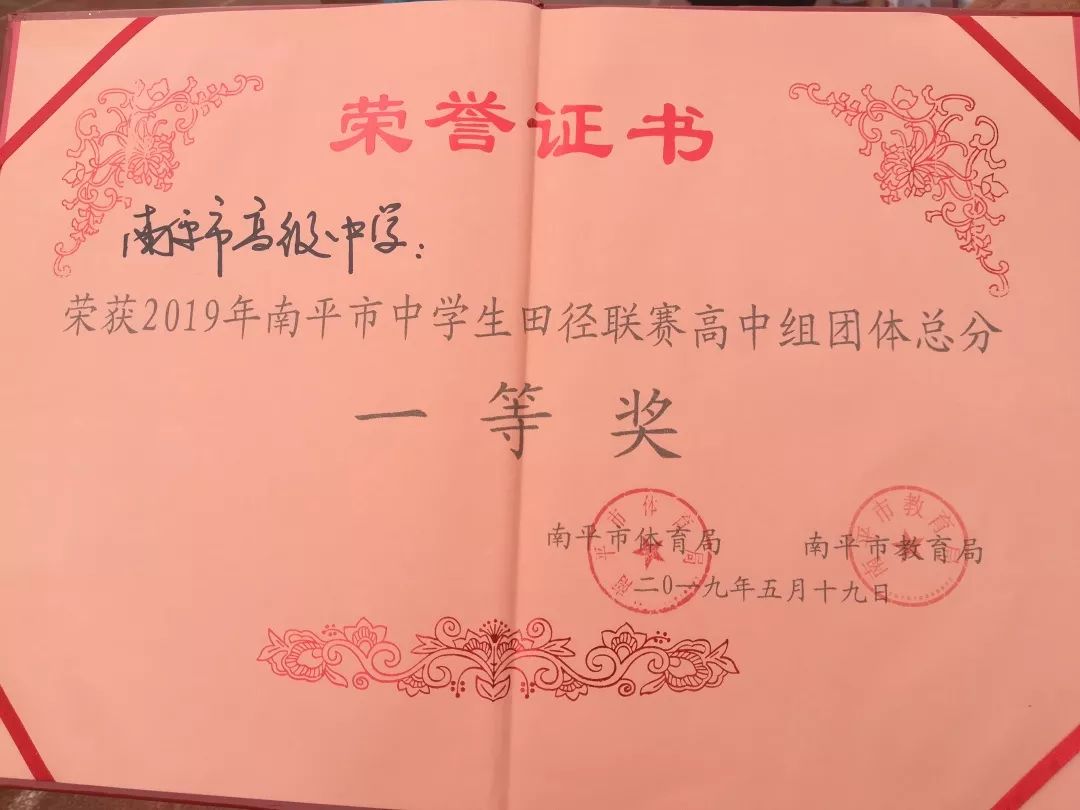 荣誉证书
南平市高级中学：
荣获2019年南平市中学生田径联赛高中组团体总分
一等奖
南平市体育局 南平市教育局
二0一九年五月十九日
南平市体育局
南平市教育局